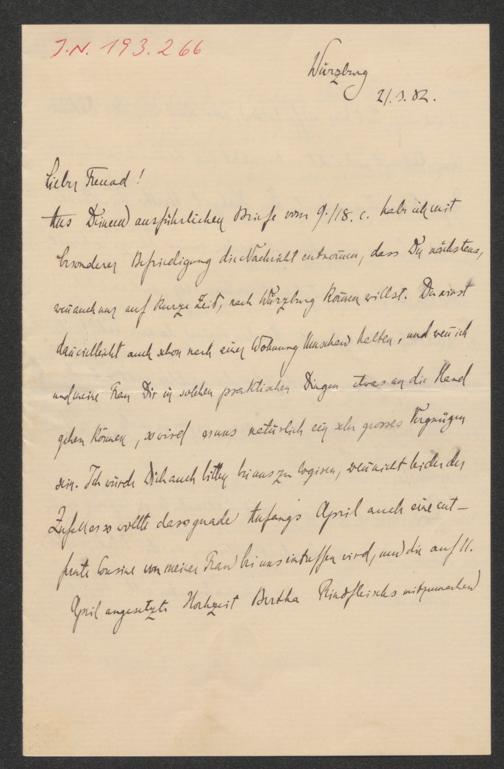 J.N. 193.266
Würzburg
21.3.82.
Lieber Freund!
Aus Deinem ausführlichen Briefe vom 9./18. c. habe ich mit
besonderer Befriedigung die Nachricht entnommen, dass Du nächstens,
wenn auch nur auf kurze Zeit, nach Würzburg kommen willst. Du wirst
da vielleicht auch schon nach einer Wohnung Umschau halten, und wenn ich
und meine Frau Dir in solchen praktischen Dingen etwas an die Hand
gehen können, so wird es uns natürlich ein sehr grosses Vergnügen
sein. Ich würde Dich auch bitten bei uns zu logiren, wenn nicht leider der
Zufall es so wollte dass gerade Anfangs April auch eine ent-
fernte Cousine von meiner Frau bei uns eintreffen wird, um die auf 11.
April angesetzte Hochzeit Bertha Rindfleischs mitzumachen